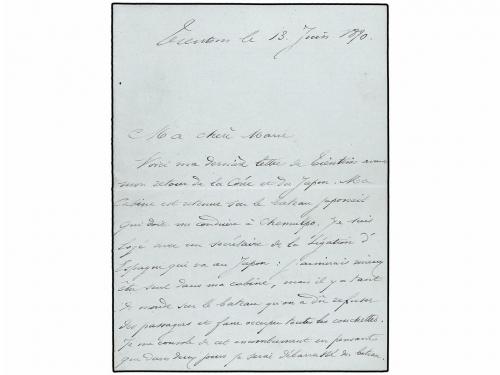 Tientsin le 13 Juin 1890.
Ma chère Marie
Voici ma dernière lettre de Tientsin avant
mon retour de la Corée et du Japon. Ma
Cabine est retenue sur le bateau japonais
qui doit me conduire à Chemulpo. Je suis
logé avec un secrétaire de la légation d'
Espagne qui va au Japon : j'aimerais mieux
être seul dans ma cabine, mais il y a tant
de monde sur le bateau qu'on a dû refuser
des passagers et faire occuper toutes les couchettes.
Je me console de cet encombrement en pensant
que dans deux jours je serai débarrassé du bateau.